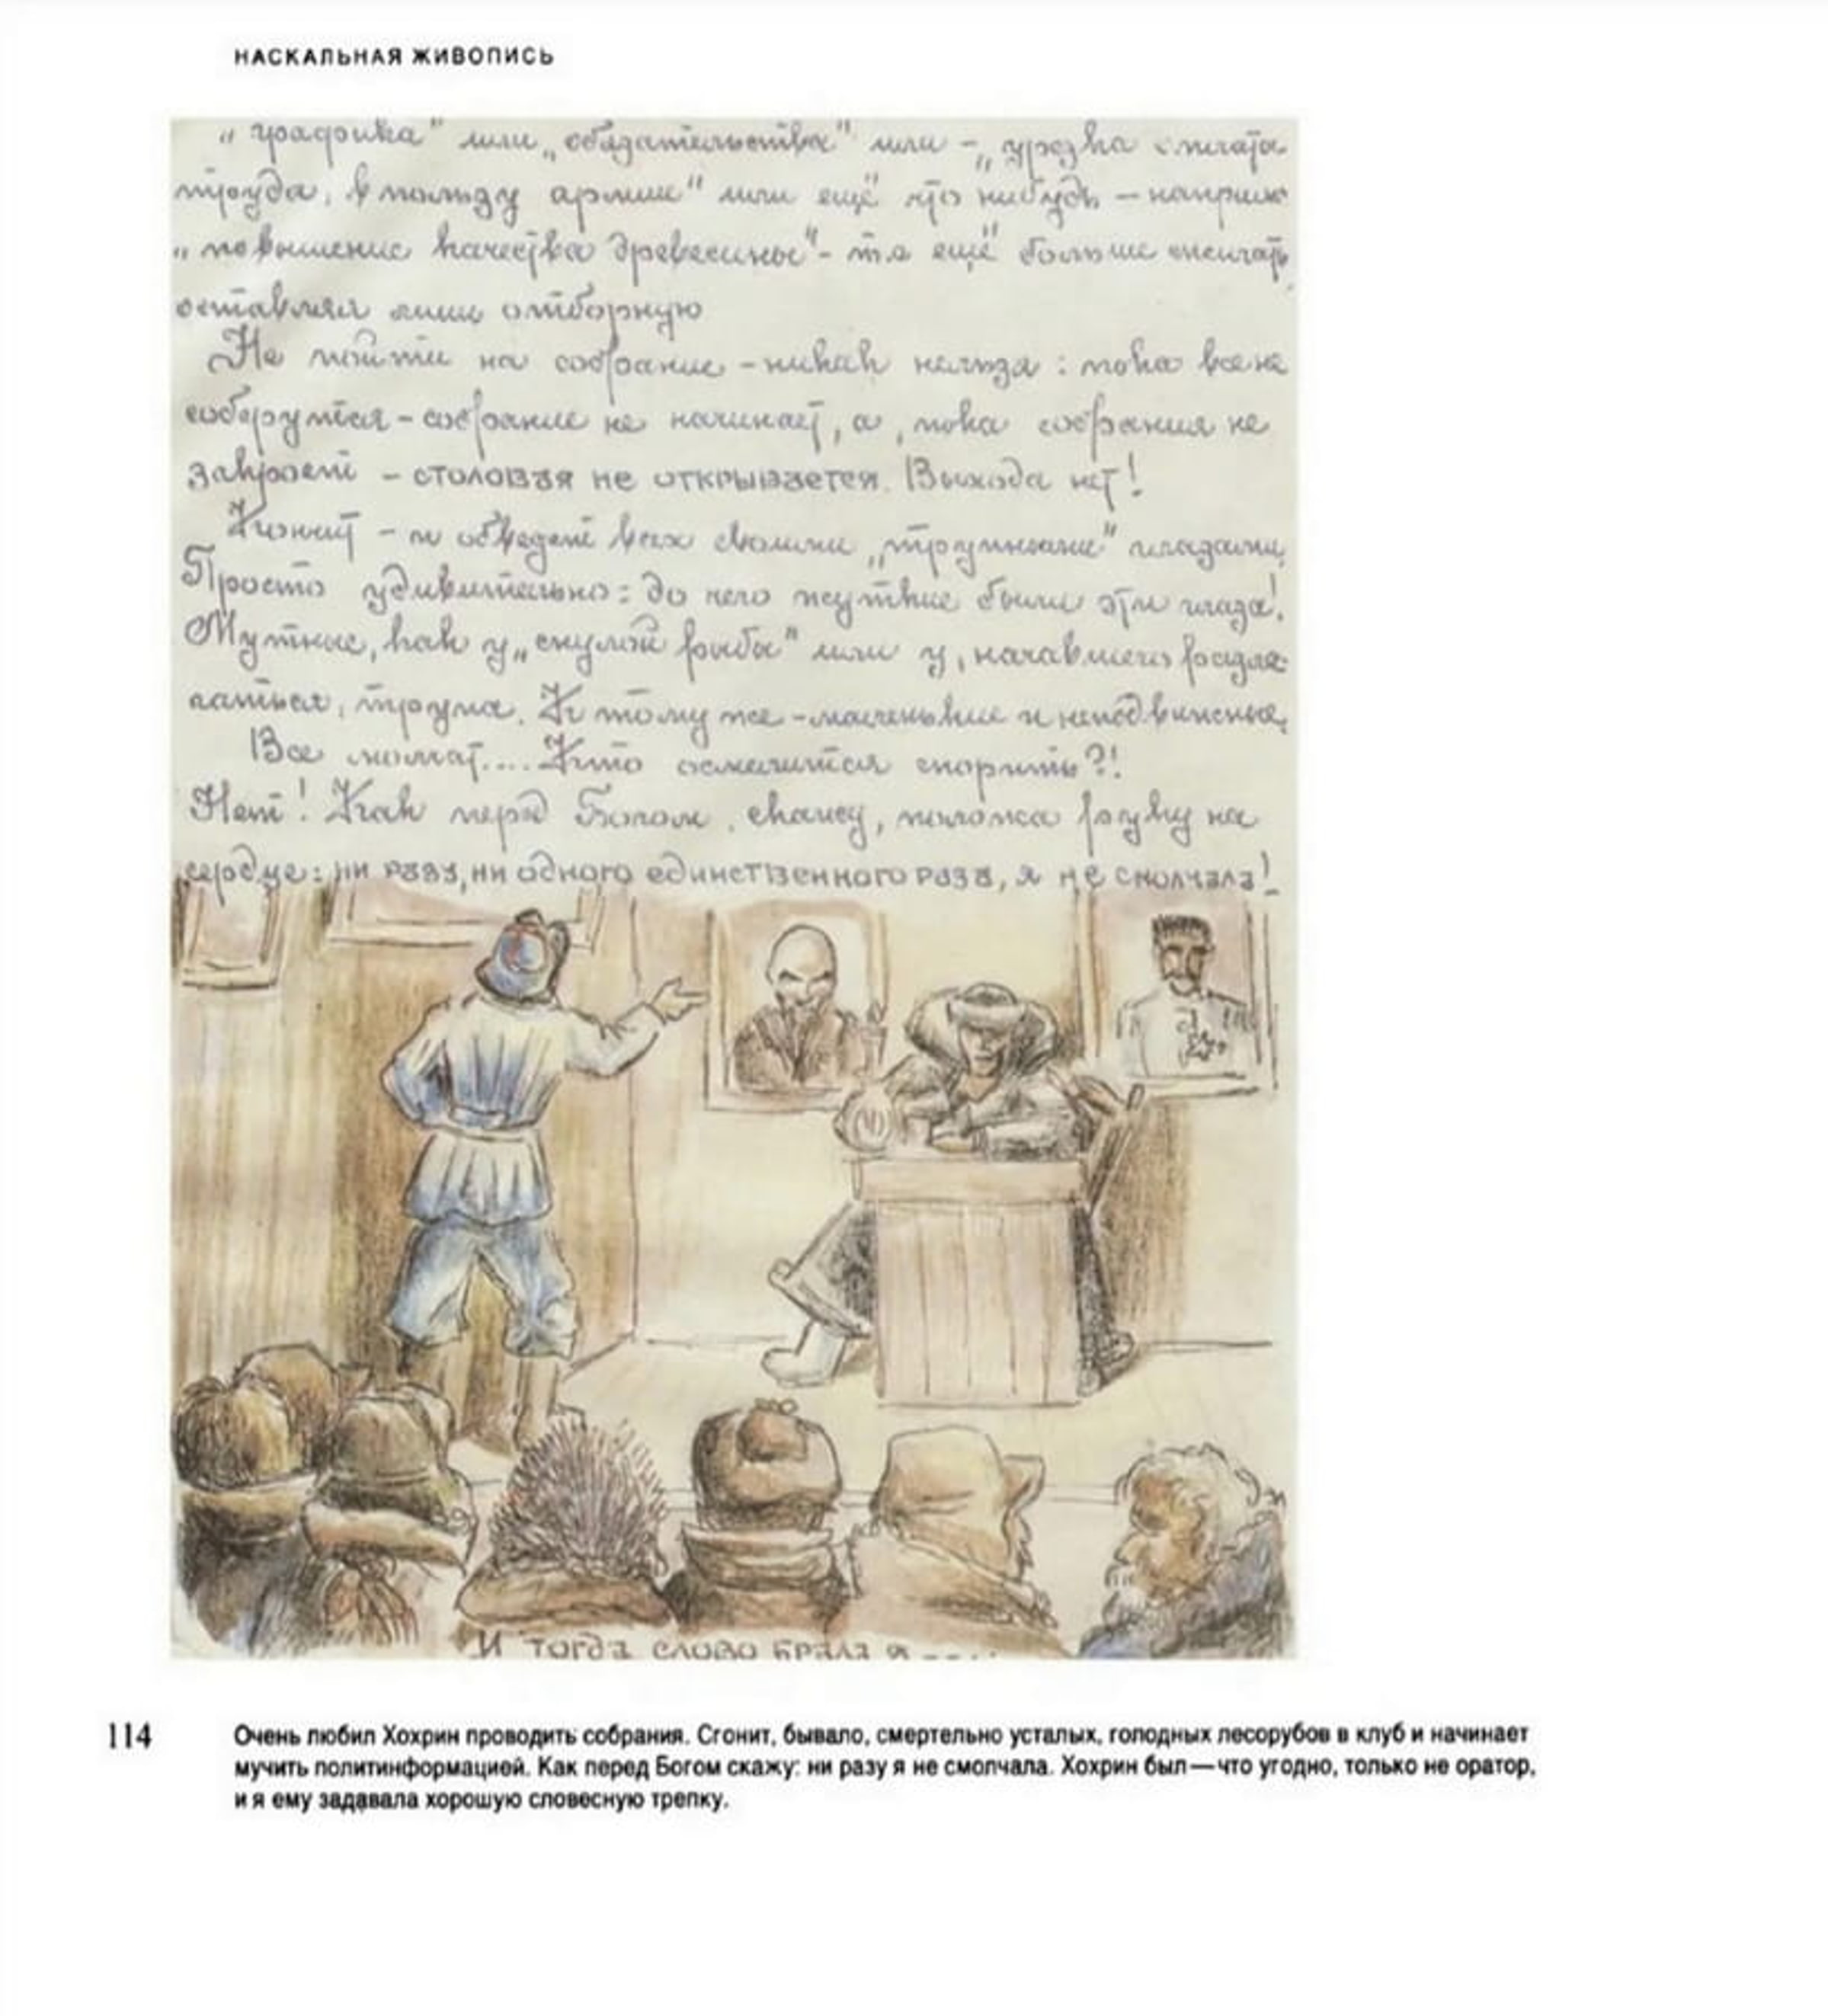 НАСКАЛЬНАЯ ЖИВОПИСЬ
„ " или „обязательства" или – „урезка оплаты
труда, в пользу армии" или ещё что нибудь – наприм
„повышение качества древесины" – т.е ещё больше сжигать,
оставляя лишь отборную
Не пойти на собрание – никак нельзя : пока все не
соберутся – собрание не начинает, а, пока собрания не
закроет – столовая не открывается. Выхода нет!
Кончит – и обведёт всех своими „трупными" глазами,
Просто удивительно: до чего жуткие были эти глаза!
Мутные, как у „снулой рыбы" или у, начавшего разла-
гаться, трупа. К тому же – маленькие и неподвижные,
Все молчат.... Кто осмелится спорить?!
Нет! Как перед Богом, скажу, положа руку на
сердце: ни разу, ни одного единственного раза, я не смолчала!
И тогда слово брала я
114
Очень любил Хохрин проводить собрания. Сгонит, бывало, смертельно усталых, голодных лесорубов в клуб и начинает
мучить политинформацией. Как перед Богом скажу: ни разу я не смолчала. Хохрин был — что угодно, только не оратор,
и я ему задавала хорошую словесную трепку.